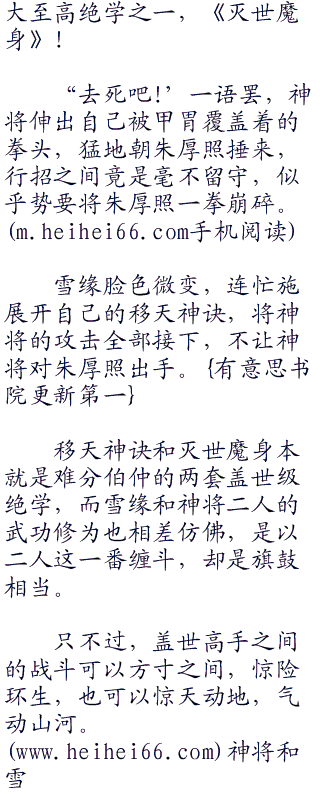 大至高绝学之一，《灭世魔
身》！
“去死吧!’一语罢，神
将伸出自己被甲胄覆盖着的
拳头，猛地朝朱厚照捶来，
行招之间竟是毫不留守，似
乎势要将朱厚照一拳崩碎。
(m.heihei66.com手机阅读)
雪缘脸色微变，连忙施
展开自己的移天神诀，将神
将的攻击全部接下，不让神
将对朱厚照出手。{有意思书
院更新第一}
移天神诀和灭世魔身本
就是难分伯仲的两套盖世级
绝学，而雪缘和神将二人的
武功修为也相差仿佛，是以
二人这一番缠斗，却是旗鼓
相当。
只不过，盖世高手之间
的战斗可以方寸之间，惊险
环生，也可以惊天动地，气
动山河。
(www.heihei66.com)神将和
雪